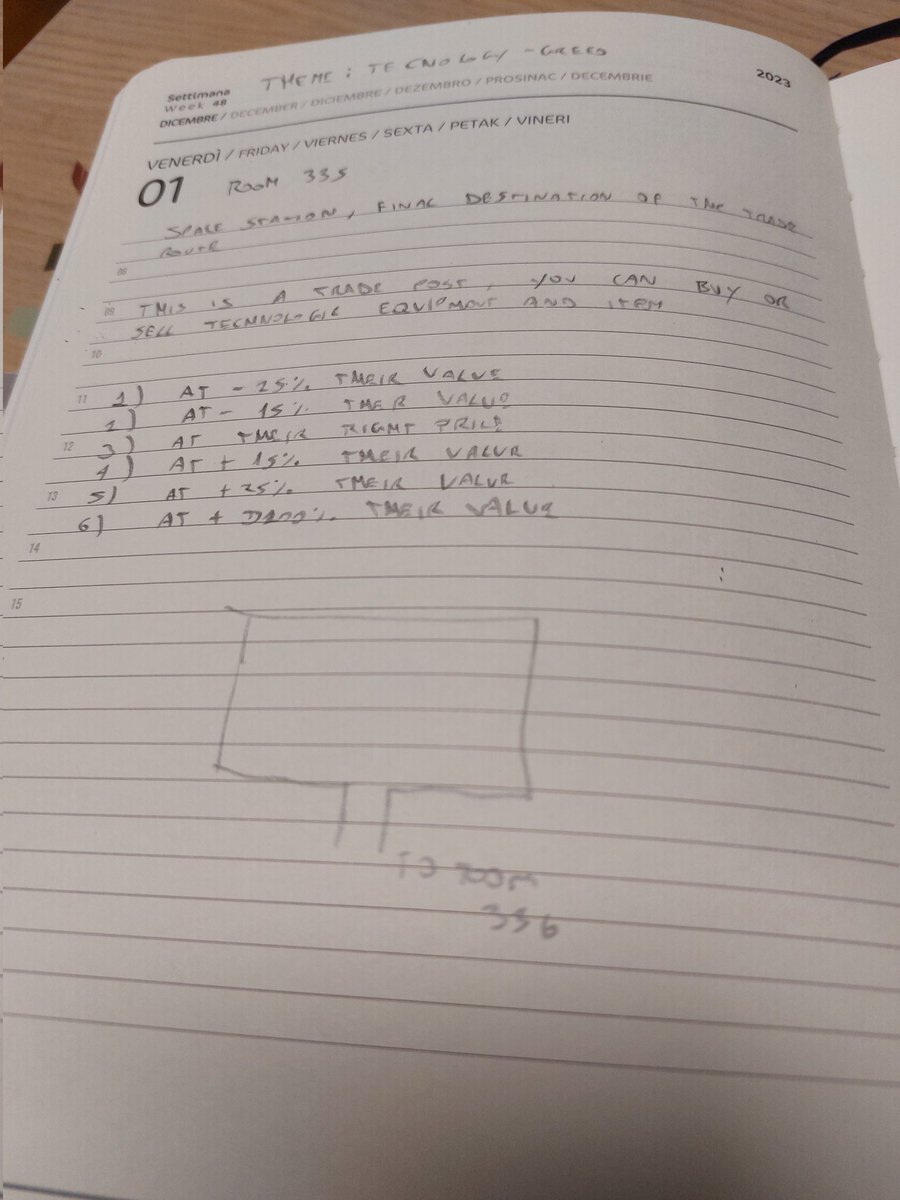 THEME: TECNOLOGY - GREED
2023
Settimana
Week 48
DICEMBRE / DECEMBER / DICIEMBRE / DEZEMBRO / PROSINAC / DECEMBRIE
VENERDÌ / FRIDAY / VIERNES / SEXTA / PETAK / VINERI
01 ROOM 335
SPACE STATION, FINAL DESTINATION OF THE TRADE
ROUTE
08
09 THIS IS A TRADE POST, YOU CAN BUY OR
SELL TECHNOLOGIC EQUIPMENT AND ITEM
10
11 1) AT -25% THEIR VALUE
2) AT -15% THER VALUE
12 3) AT THEIR RIGHT PRICE
4) AT +15% THEIR VALUE
13 5) AT +25% THEIR VALUE
6) AT + D100% THEIR VALUE
14
15
TO ROOM
336